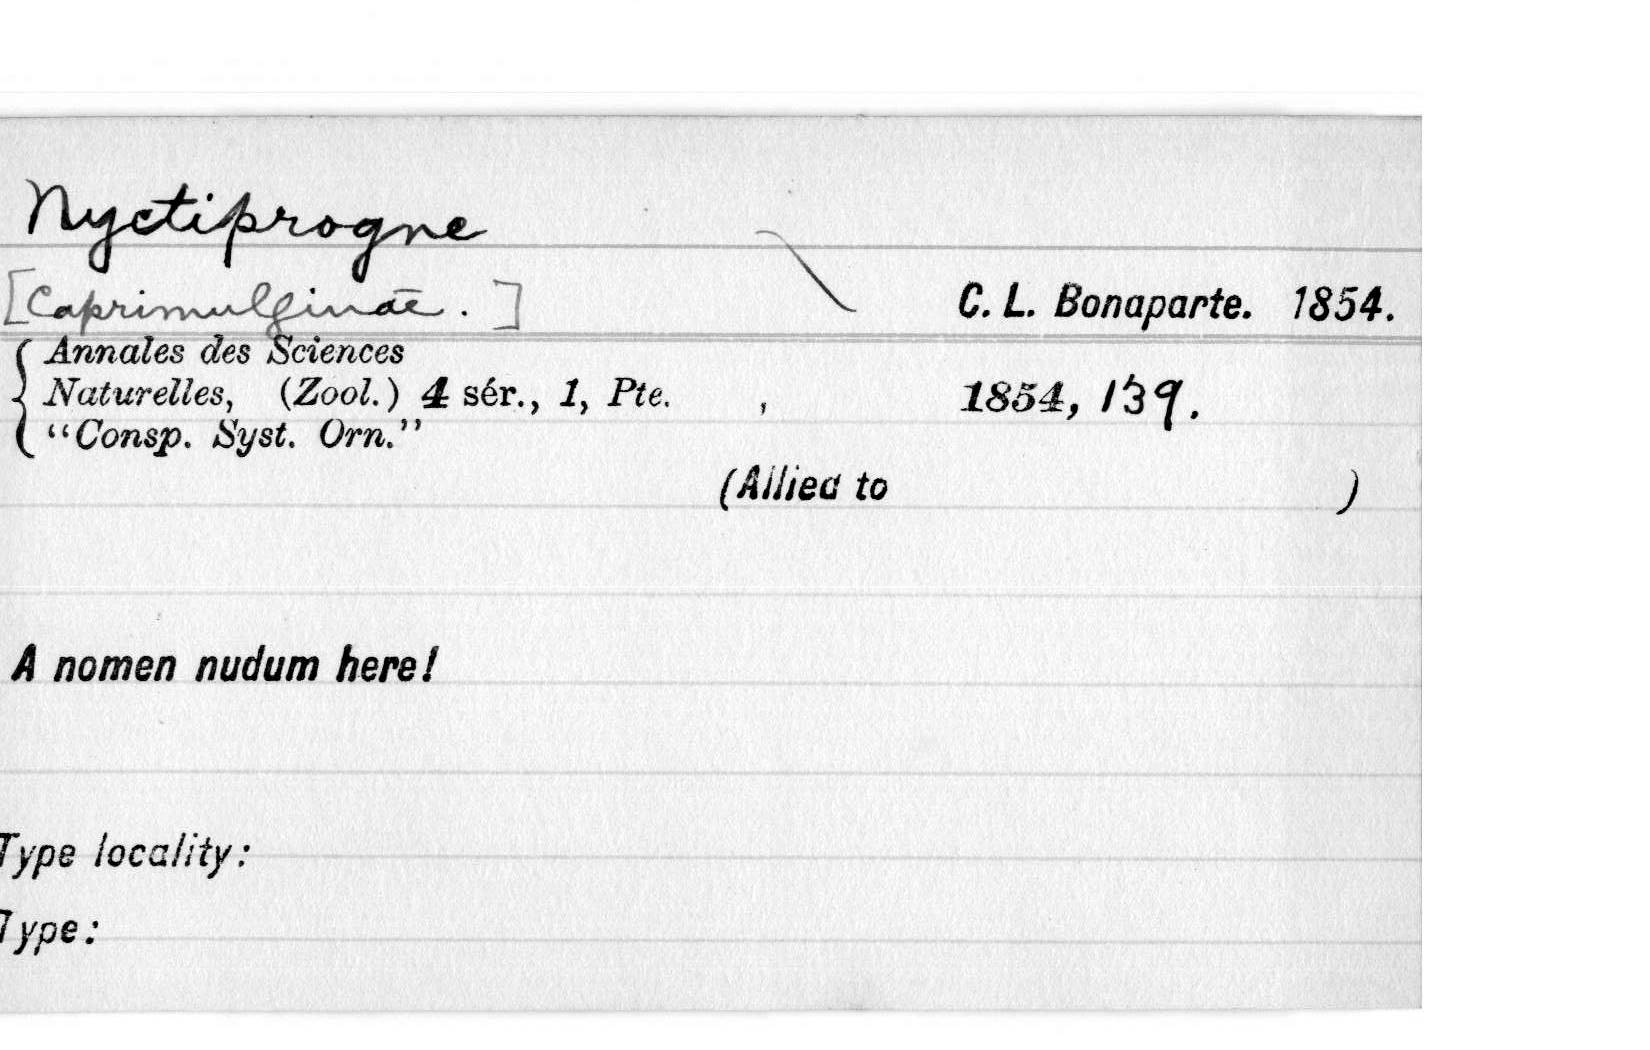 Nyctiprogne
[Caprimulginae.]
C. L. Bonaparte. 1854.
Annales des Sciences
Naturelles, (Zool.) 4 sér., 1, Pte. , 1854, 139.
"Consp. Syst. Orn."
(Allied to )
A nomen nudum here!
Type locality:
Type: